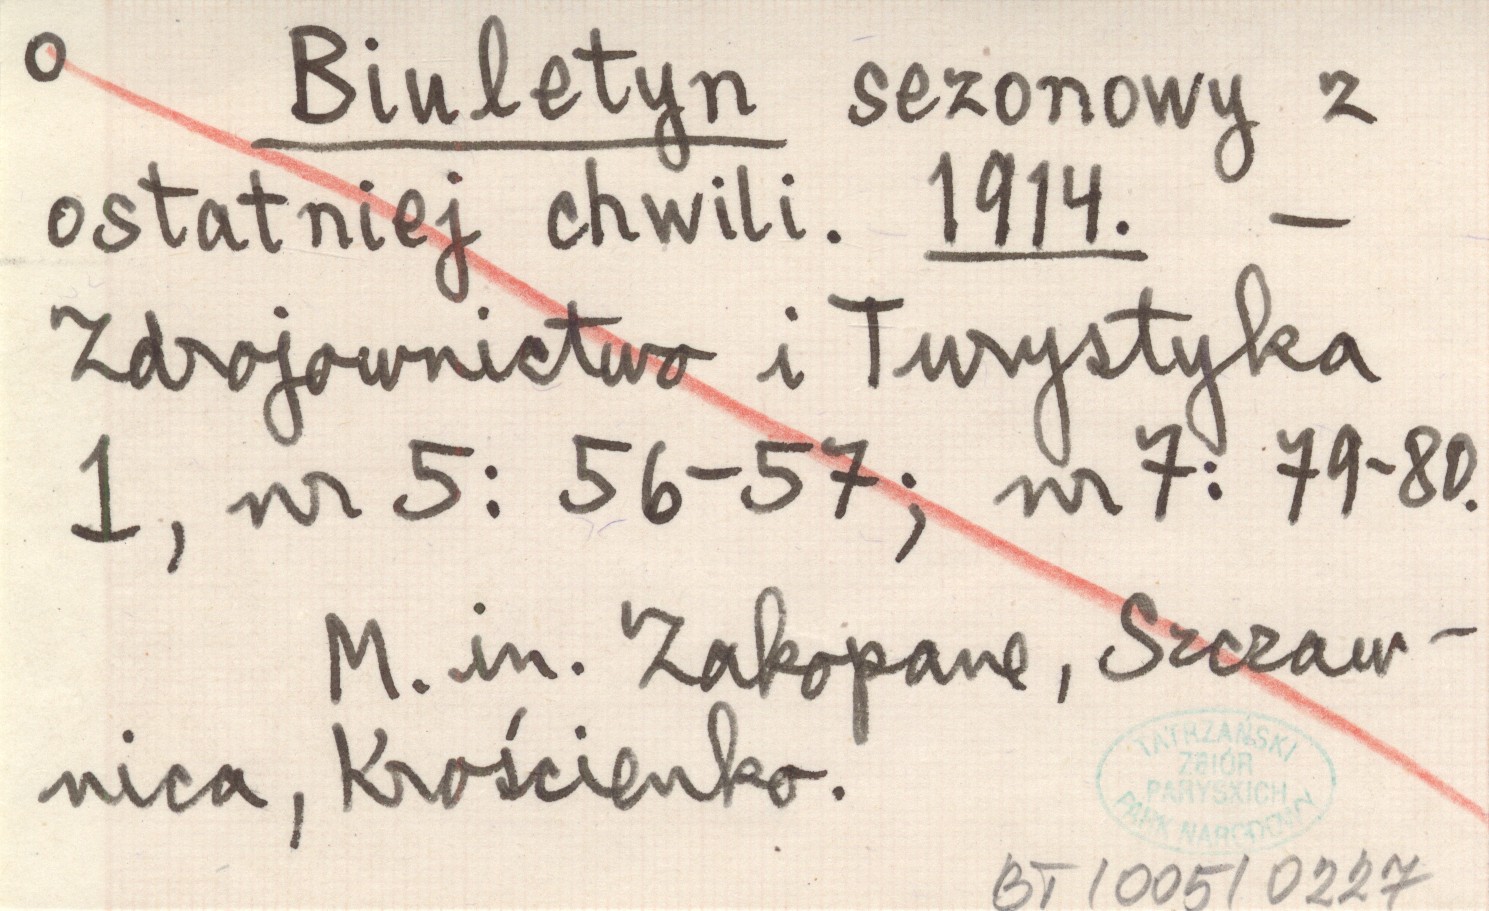 o Biuletyn sezonowy z
ostatniej chwili. 1914. —
Zdrojownictwo i Turystyka
1, nr 5: 56-57; nr 7: 79-80.
M. in. Zakopane, Szczaw-
nica, Krościenko.
TATRZAŃSKI
ZBIÓR
PARYSKICH
PARK NARODOWY
BT/005/0227